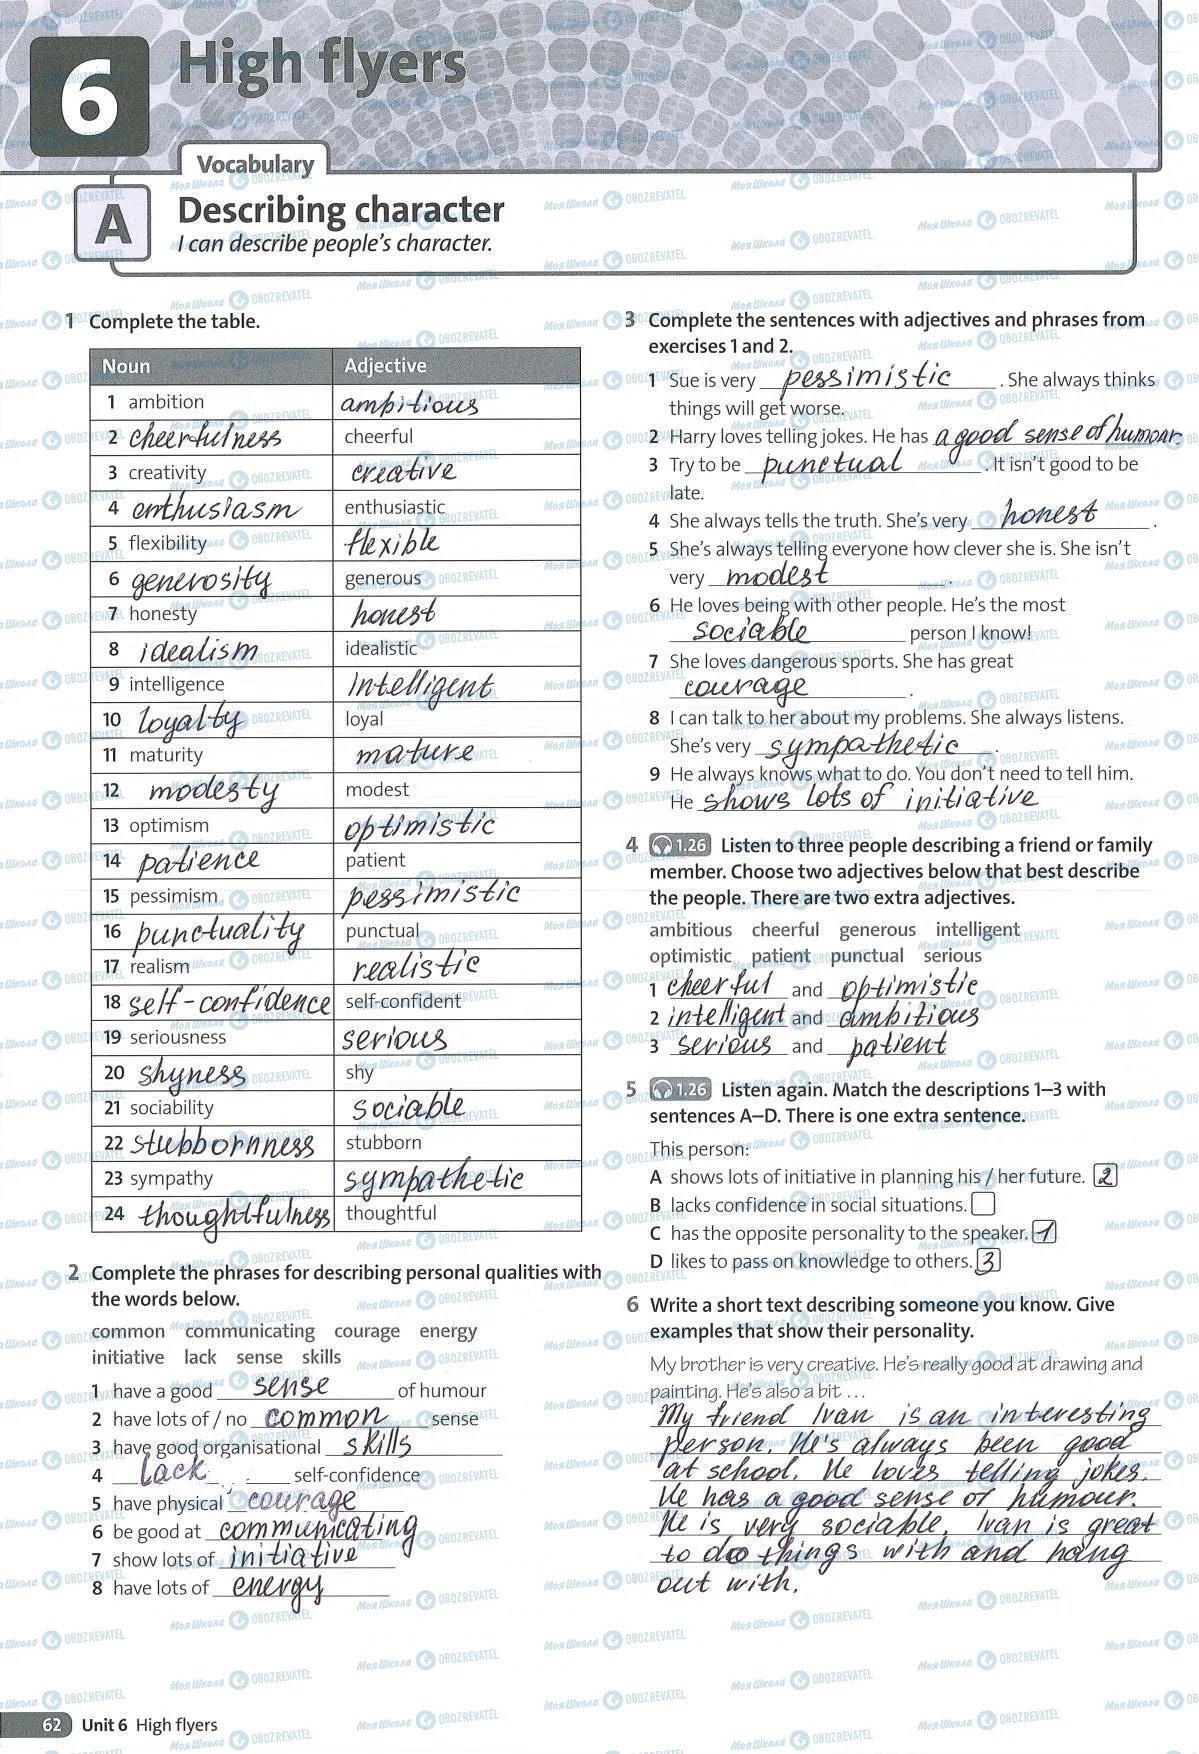 6
High flyers
Vocabulary
A
Describing character
I can describe people's character.
1 Complete the table.
Noun Adjective
1 ambition ambitious
2 cheerfulness cheerful
3 creativity creative
4 enthusiasm enthusiastic
5 flexibility flexible
6 generosity generous
7 honesty honest
8 idealism idealistic
9 intelligence intelligent
10 loyalty loyal
11 maturity mature
12 modesty modest
13 optimism optimistic
14 patience patient
15 pessimism pessimistic
16 punctuality punctual
17 realism realistic
18 self-confidence self-confident
19 seriousness serious
20 shyness shy
21 sociability sociable
22 stubbornness stubborn
23 sympathy sympathetic
24 thoughtfulness thoughtful
2 Complete the phrases for describing personal qualities with
the words below.
common communicating courage energy
initiative lack sense skills
1 have a good sense of humour
2 have lots of / no common sense
3 have good organisational skills
4 lack self-confidence
5 have physical courage
6 be good at communicating
7 show lots of initiative
8 have lots of energy
3 Complete the sentences with adjectives and phrases from
exercises 1 and 2.
1 Sue is very pessimistic. She always thinks
things will get worse.
2 Harry loves telling jokes. He has a good sense of humour.
3 Try to be punctual. It isn't good to be
late.
4 She always tells the truth. She's very honest.
5 She's always telling everyone how clever she is. She isn't
very modest.
6 He loves being with other people. He's the most
sociable person I know!
7 She loves dangerous sports. She has great
courage.
8 I can talk to her about my problems. She always listens.
She's very sympathetic.
9 He always knows what to do. You don't need to tell him.
He shows lots of initiative
4 1.26 Listen to three people describing a friend or family
member. Choose two adjectives below that best describe
the people. There are two extra adjectives.
ambitious cheerful generous intelligent
optimistic patient punctual serious
1 cheerful and optimistic
2 intelligent and ambitious
3 serious and patient
5 1.26 Listen again. Match the descriptions 1–3 with
sentences A–D. There is one extra sentence.
This person:
A shows lots of initiative in planning his / her future. 2
B lacks confidence in social situations.
C has the opposite personality to the speaker. 1
D likes to pass on knowledge to others. 3
6 Write a short text describing someone you know. Give
examples that show their personality.
My brother is very creative. He's really good at drawing and
painting. He's also a bit ...
My friend Ivan is an interesting
person. He's always been good
at school. He loves telling jokes.
He has a good sense of humour.
He is very sociable. Ivan is great
to do things with and hang
out with.
62 Unit 6 High flyers
МояШкола OBOZREVATEL